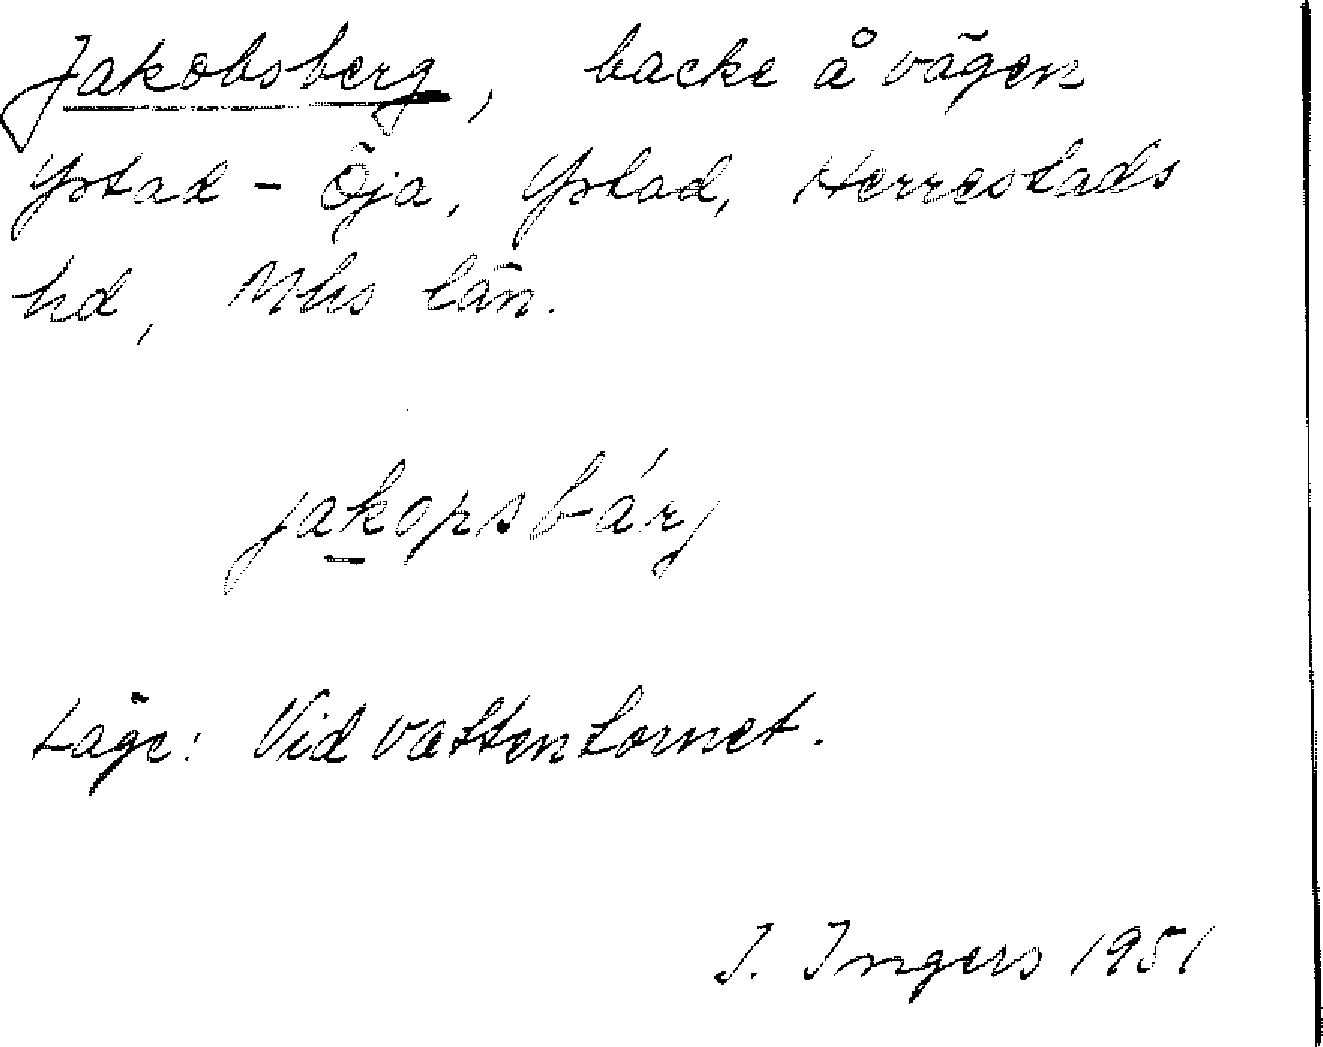 Jakobsberg, backe å vägen
Ystad - Öja, Ystad, Herrestads
hd, Mhs län.
jakopsbárj
Läge: Vid vattentornet.
I. Ingers 1951